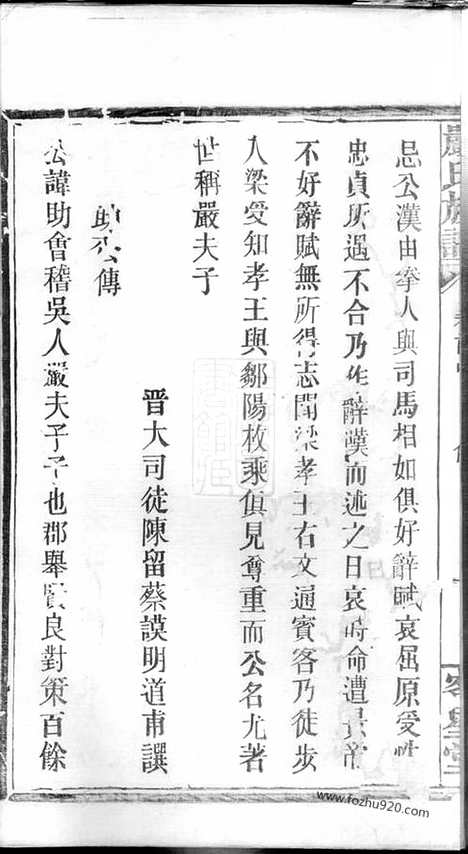 嚴氏族譜
忌公漢由拳人與司馬相如俱好辭賦哀屈原受性
忠貞所遇不合乃作辭漢而述之曰哀時命遭景帝
不好辭賦無所得志聞梁孝王右文通賓客乃徒步
入梁受知孝王與鄒陽枚乘俱見尊重而公名尤著
世稱嚴夫子
晋大司徒陳留蔡謨明道甫譔
助公傳
公諱助會稽吳人嚴夫子子也郡舉賢良對策百餘
www.fozhu920.com